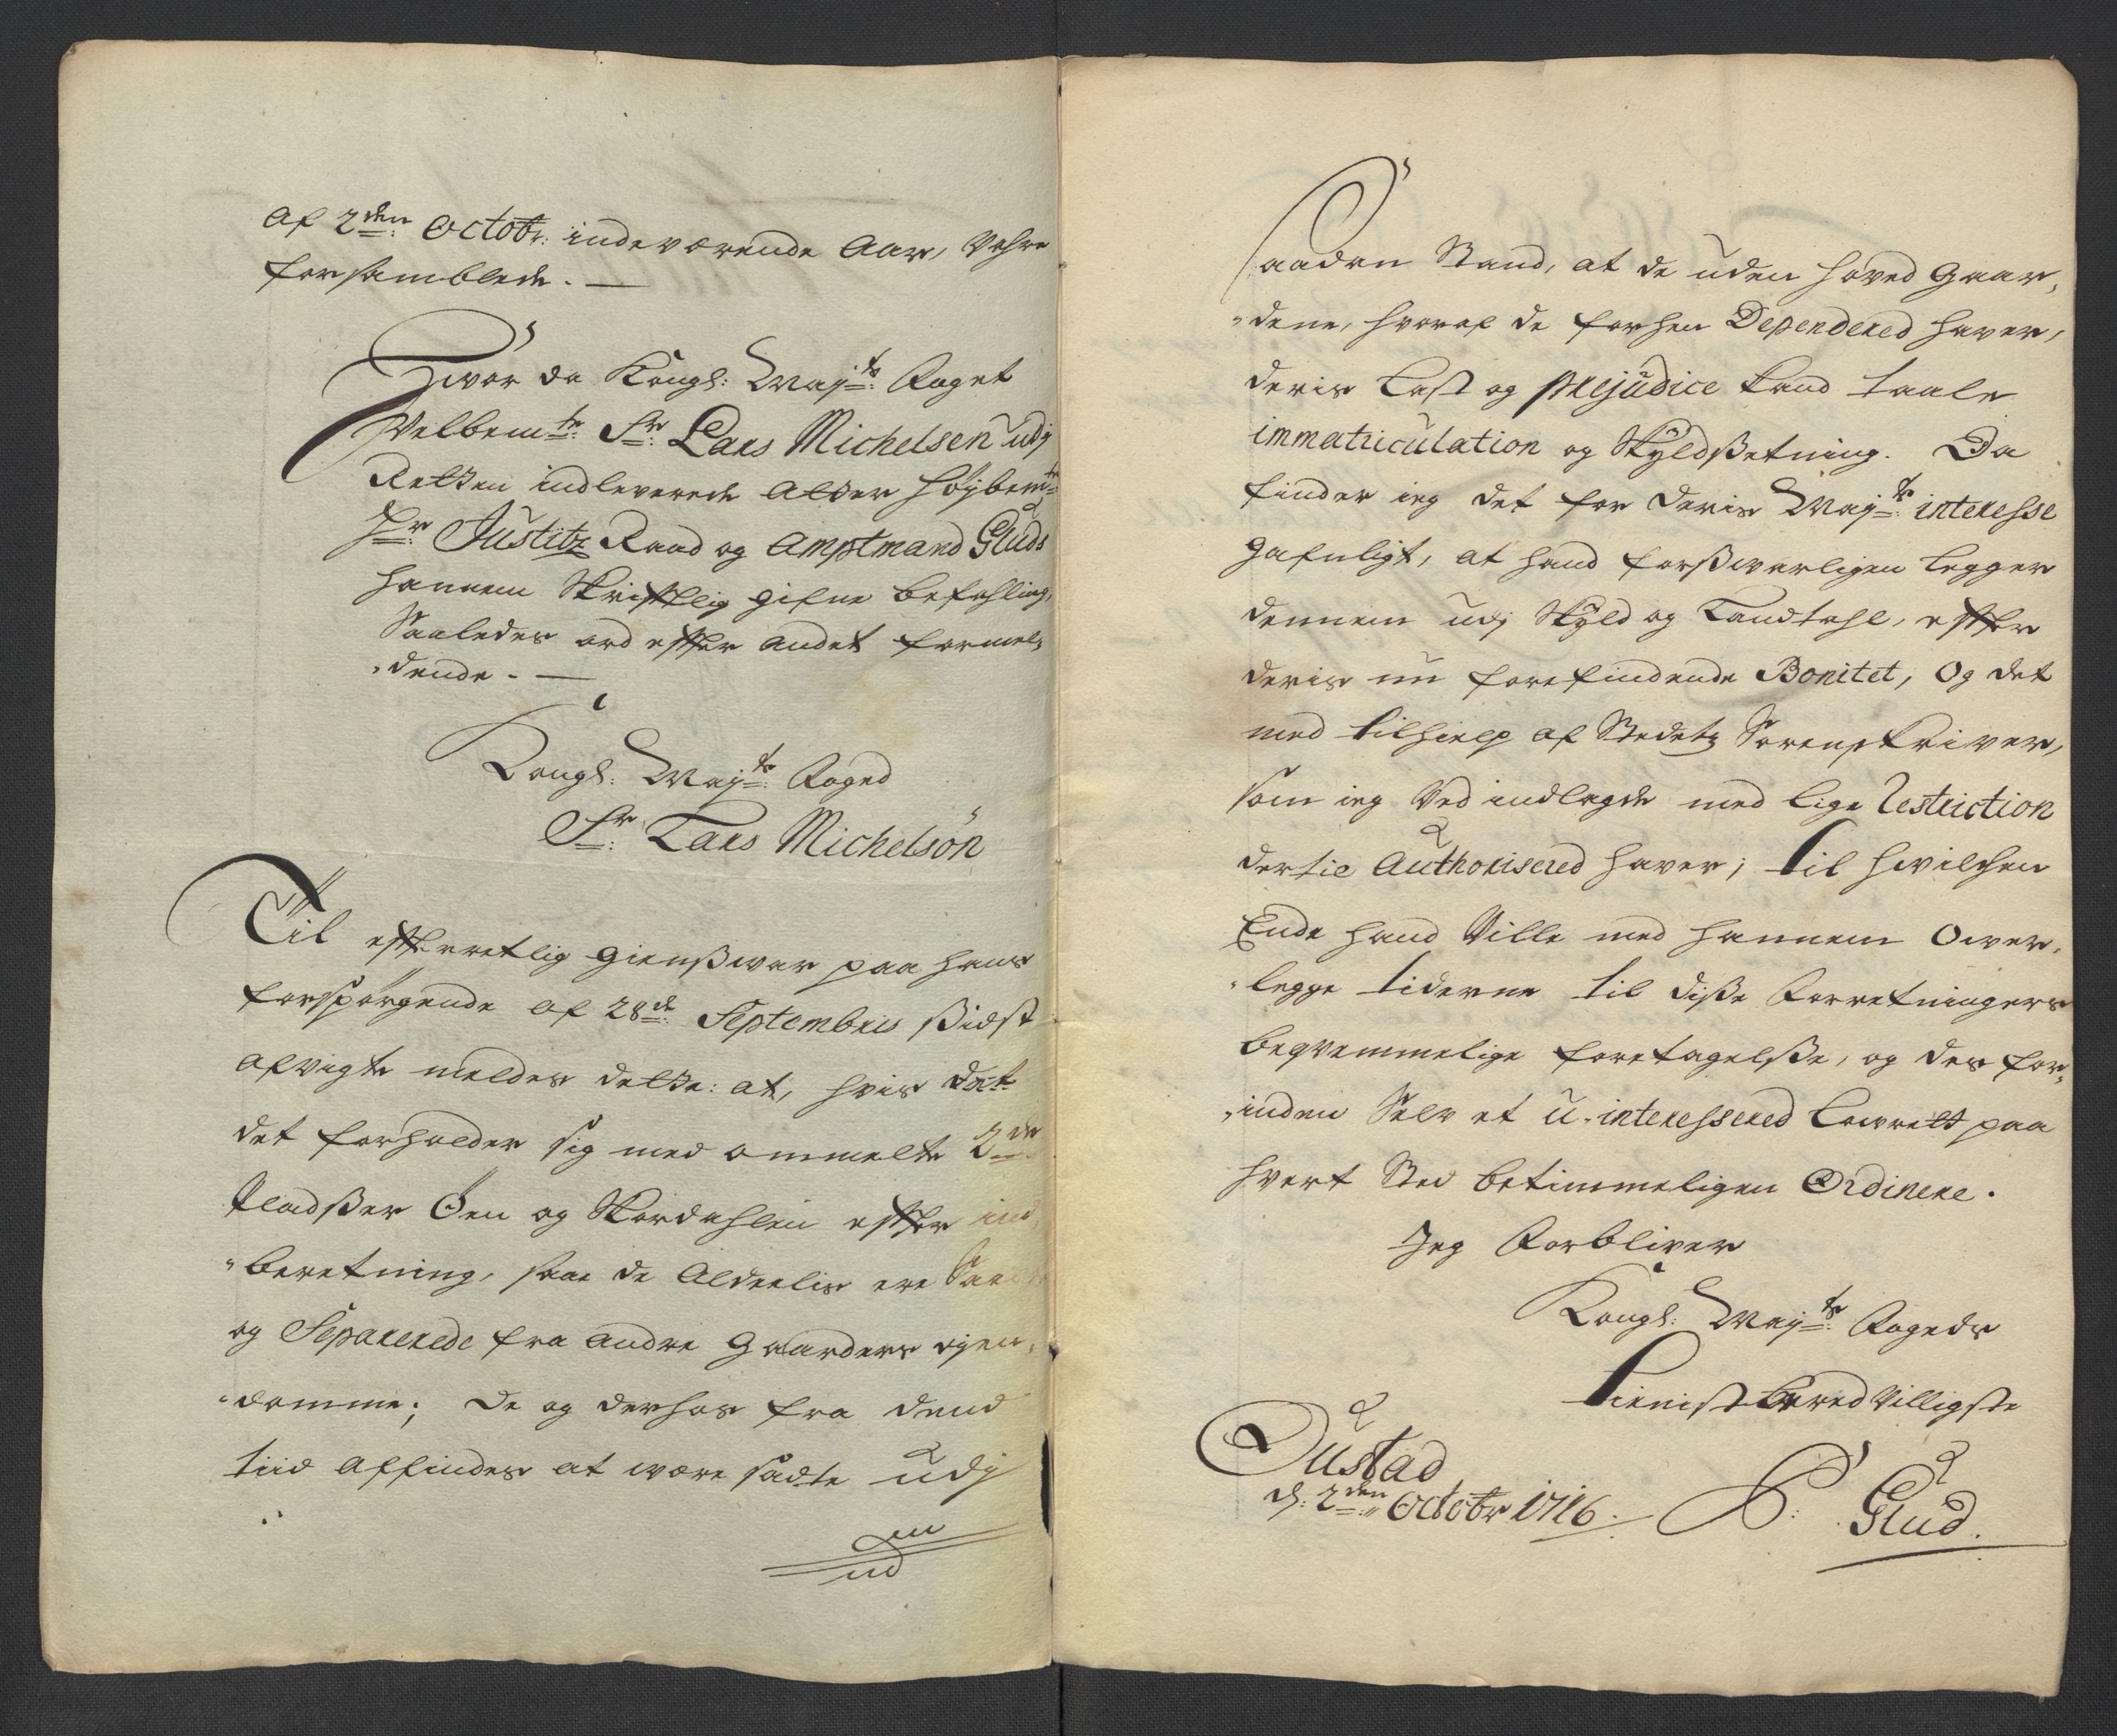 af 2den Octobr: indeværende Aar, Vahre
forsamblede. —
Hvor da Kongl: Mayts: Foget
Welbemte: Sr: Lars Michelsen udj
Retten indleverede Atter høybemte:
Hr: Justitz Raad og Amptmand Gluds
hannem Skrifftlig gifne befahling,
Saaledes ord effter andet formel„
„dende. —
Kongl: Mayts: Foged
Sr: Lars Michelsøn
Til effterretlig gienßwar paa hans
forspørgende af 28de: Septembris ßidst
afvigte meldes dette: at, hvis
det forholder sig med ommelte 2de
Pladßer Øen og Skordahlen effter ind„
„beretning, saa de Aldeelis ere
og Separerede fra andre Gaarders eyen„
„domme; De og derhos fra dend
tiid affindes at være sadte udj
Saadan Stand, at de uden hoved Gaar„
„dene, hvoraf de forhen Dependered haver,
deris Last og prejudice kand taale
immatriculation og Skyldßetning. Da
finder ieg det for deris Mayts: interesse
gafnligt, at hand forßwarligen legger
dennem udj Skyld og Landtahl, effter
deris nu forefindende Bonitet, Og det
med tilhielp af Stedetz Sorenskriver,
som ieg Ved indlagde med lige Restriction
dertil Authorisered haver; til hvilchen
Ende hand Ville med hannem Over„
„legge tiderne til diße Forretningers
beqvemmelige foretagelße, og des for„
„inden Selv et U-interessered Lavrett paa
hvert Sted betimmeligen Ordinere.
Jeg Forbliver
Kongl: Mayts: Fogeds
tienistberedvilligste
Dustad
d: 2den Octobr 1716.
S: Glud.